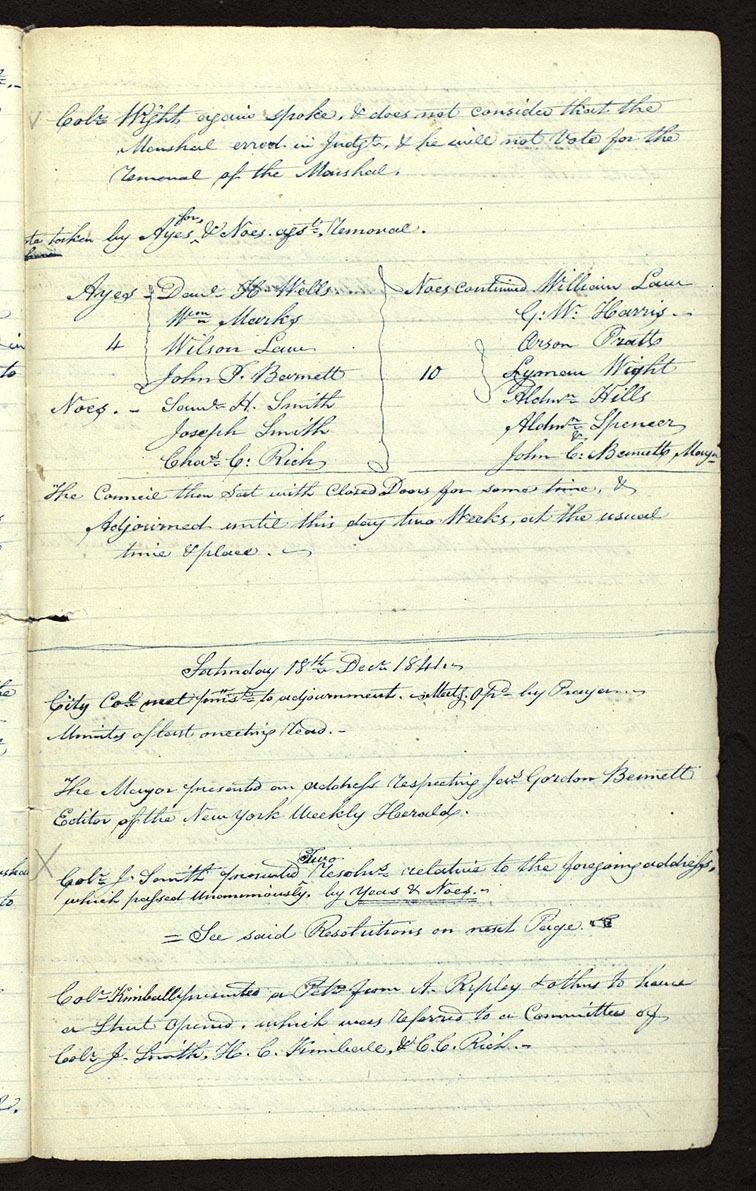 Colr. Wight again spoke, & does not consider that the
Marshal erred in Judgt., & he will not Vote for the
removal of the Marshal.
taken by Ayes for, & Noes agst. removal.
Ayes - Danl. H Wells
Wm. Marks
4 Wilson Law
John P. Barnett
Noes. - Saml. H. Smith
Joseph Smith
Chas. C. Rich
Noes continued William Law
G. W. Harris -
Orson Pratt
10 Lyman Wight
Aldmn. Hills
Aldmn. Spencer
&
John C. Bennett, Mayr.
The Council then Sat with Closed Doors for some time, &
Adjourned until this day two Weeks, at the usual
time & place.
Saturday 18th Decr. 1841.
City Col. met pursut. to adjournment. - Meetg. Opd. by Prayer. -
Minutes of last meeting read. -
The Mayor presented an address respecting Jas. Gordon Bennett
Editor of the New York Weekly Herald.
X Colr. J. Smith presented Two resolns. relative to the foregoing address,
which passed Unanimously, by Yeas & Noes. -
= See said Resolutions on next Page.
Colr. Kimball presented a Petn. from A. Ripley & others to have
a Street Opened, which was referred to a Committee of
Colr. J. Smith, H. C. Kimball, & C. C. Rich. -